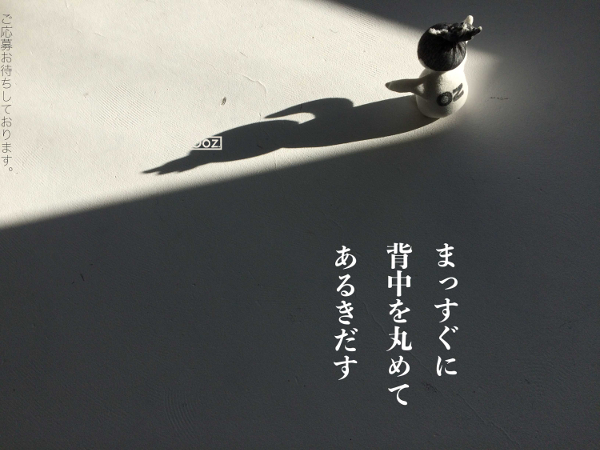 まっすぐに
背中を丸めて
あるきだす
ご応募お待ちしております。
OZ